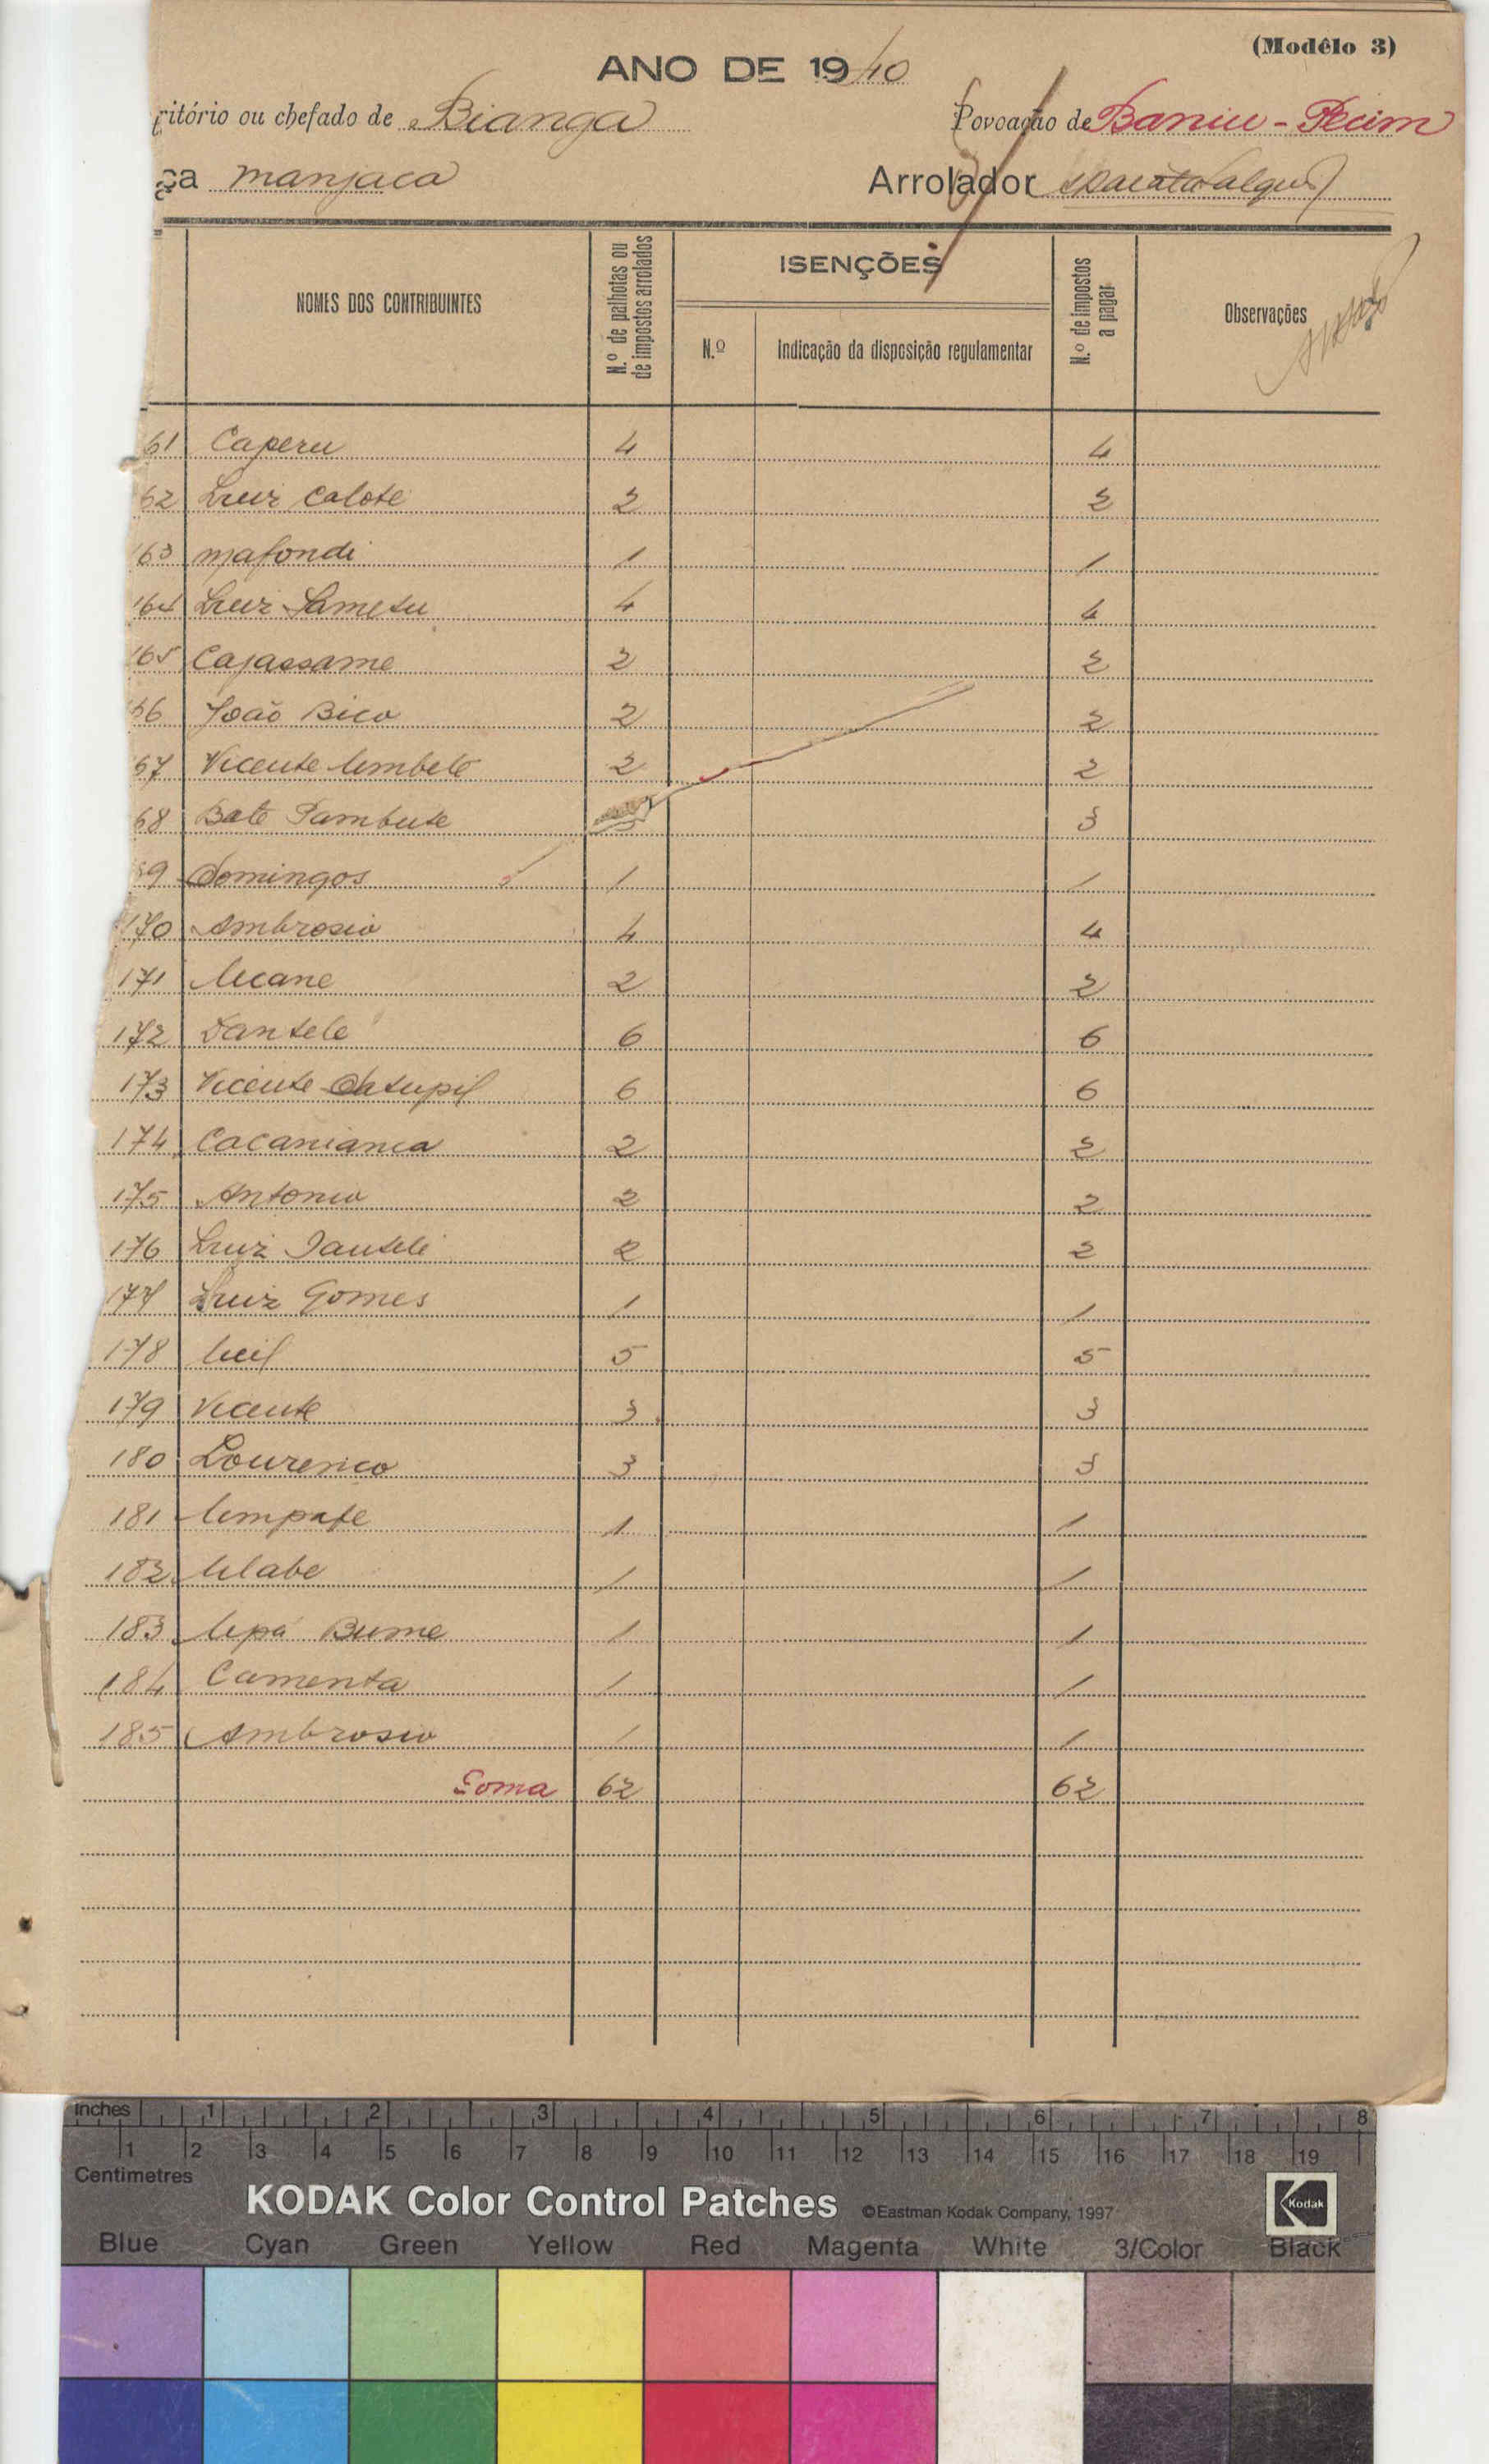 (Modêlo 3)
ANO DE 1940
ritório ou chefado de Bianga Povoação de Baniu - Pecim
ça manjaca Arrolador
NOMES DOS CONTRIBUINTES
N.º de palhotas ou de impostos arrolados
ISENÇÕES
N.º
Indicação da disposição regulamentar
N.º de impostos a pagar
Observações
61 Caperu 4 4
62 Luiz Calote 2 2
163 mafondi 1 1
164 Luiz Sametu 4 4
165 Cajassame 2 2
66 João Bico 2 2
67 Vicente Umbelo 2 2
68 Bato Pambute 3
69 Domingos 1 1
170 Ambrosio 4 4
171 Ucane 2 2
172 Dantele 6 6
173 Vicente Catupil 6 6
174 Cacanianca 2 2
175 Antonio 2 2
176 Luiz Dantele 2 2
177 Luiz Gomes 1 1
178 Ucil 5 5
179 Vicente 3 3
180 Lourenco 3 3
181 Umpafe 1 1
182 Ulabe 1 1
183 Upá Bume 1 1
184 Camenta 1 1
185 Ambrosio 1 1
Soma 62 62
inches 1 2 3 4 5 6 7 8
1 2 3 4 5 6 7 8 9 10 11 12 13 14 15 16 17 18 19
Centimetres
KODAK Color Control Patches ©Eastman Kodak Company, 1997 Kodak
Blue Cyan Green Yellow Red Magenta White 3/Color Black